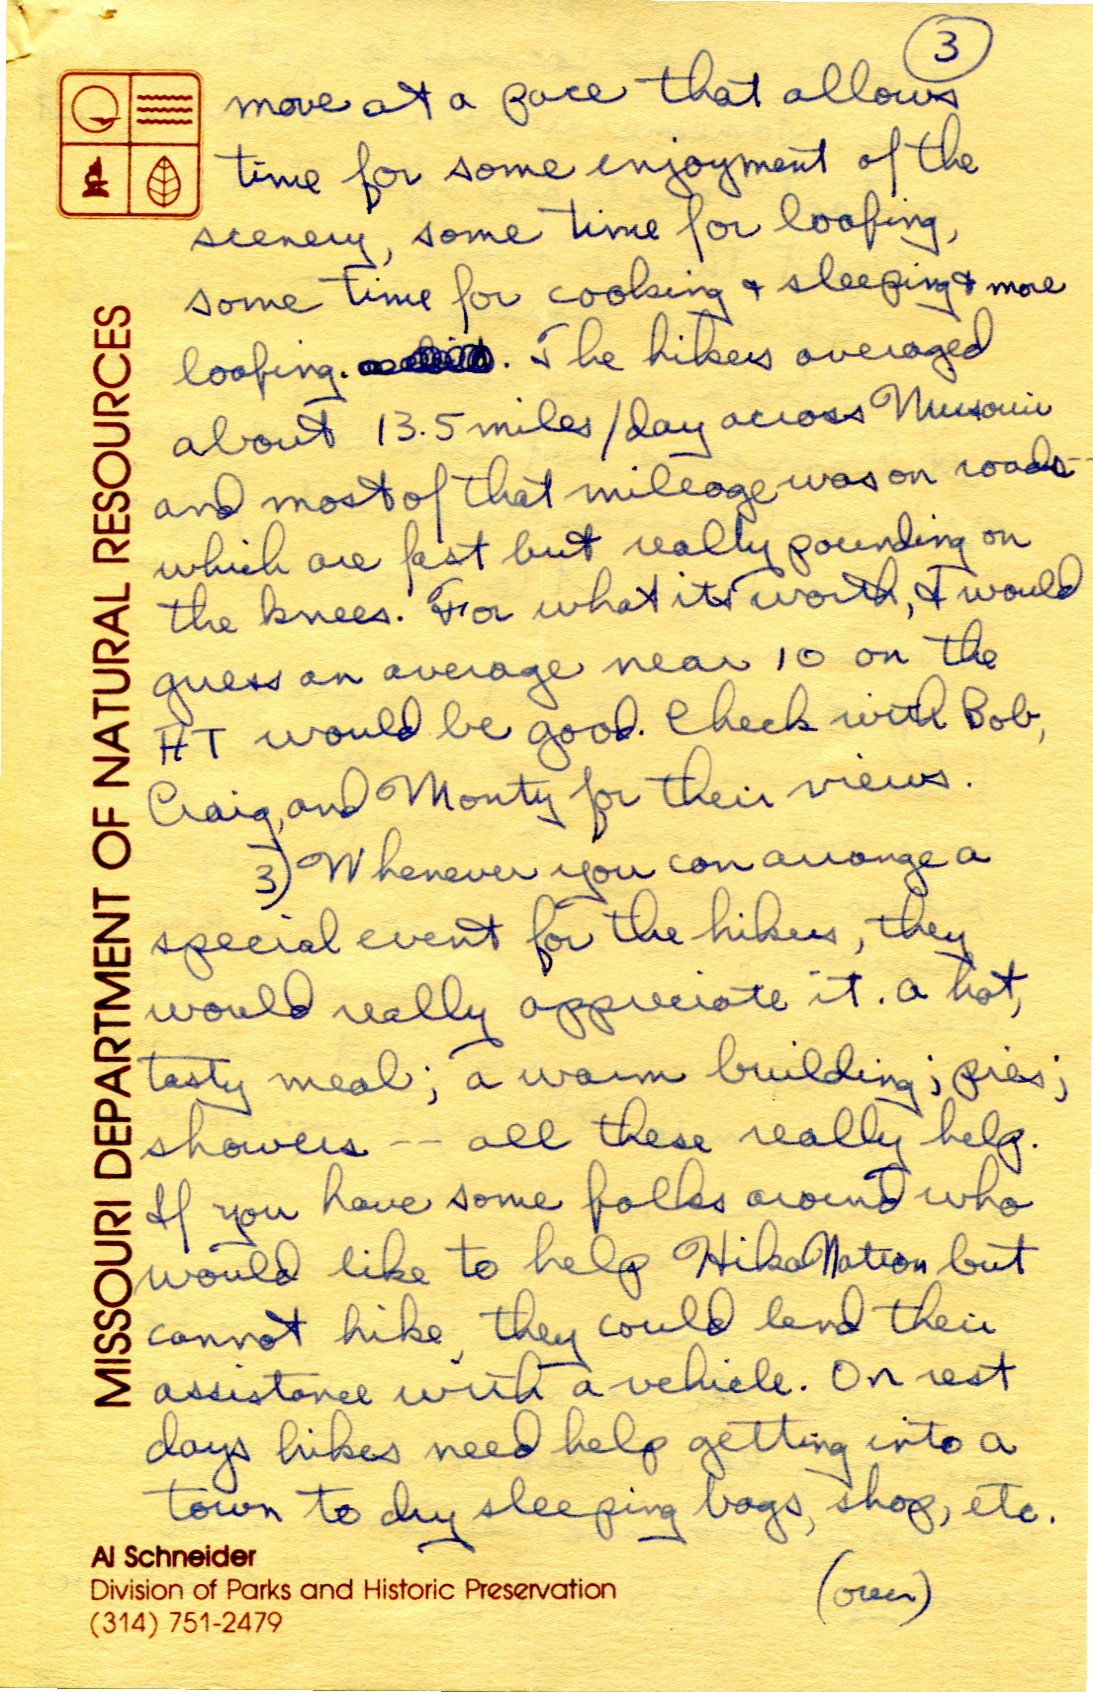 3
move at a pace that allows
time for some enjoyment of the
scenery, some time for loafing,
some time for cooking & sleeping & more
loafing. . The hikers averaged
about 13.5 miles/day across Missouri
and most of that mileage was on roads--
which are fast but really pounding on
the knees. For what its worth, I would
guess an average near 10 on the
HT would be good. Check with Bob,
Craig, and Monty for their views.
3) Whenever you can arrange a
special event for the hikers, they
would really appreciate it. a hot,
tasty meal; a warm building; pies;
showers -- all these really help.
If you have some folks around who
would like to help HikaNation but
cannot hike, they could lend their
assistance with a vehicle. On rest
days hikes need help getting into a
town to dry sleeping bags, shop, etc.
(over)
MISSOURI DEPARTMENT OF NATURAL RESOURCES
Al Schneider
Division of Parks and Historic Preservation
(314) 751-2479